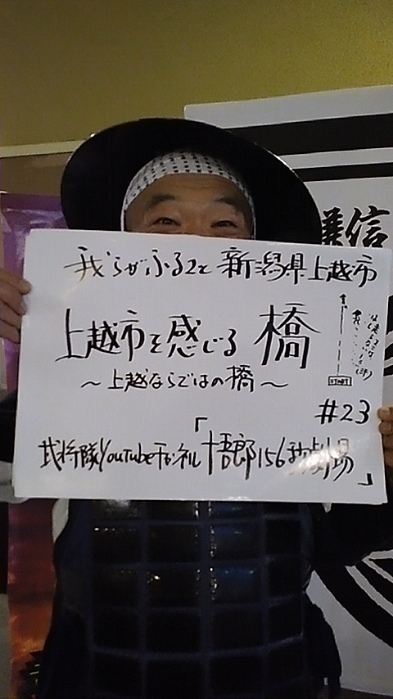 我らがふる2と 新潟県上越市
上越市を感じる 橋
～上越ならではの橋～
START
#23
武将隊YouTubeチャンネル「十吾郎156秒劇場」
謙信